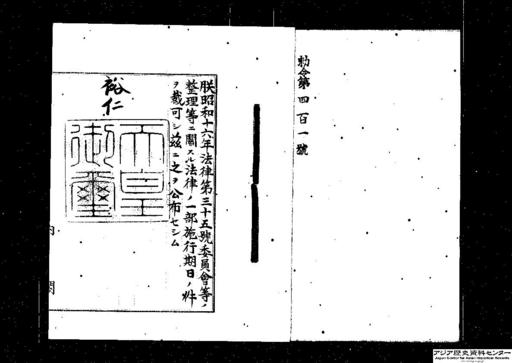 勅令第四百一號
朕昭和十六年法律第三十五號委員會等ノ
整理等ニ關スル法律ノ一部施行期日ノ件
ヲ裁可シ茲ニ之ヲ公布セシム
裕仁
天皇
御璽
内閣
アジア歴史資料センター
Japan Center for Asian Historical Records